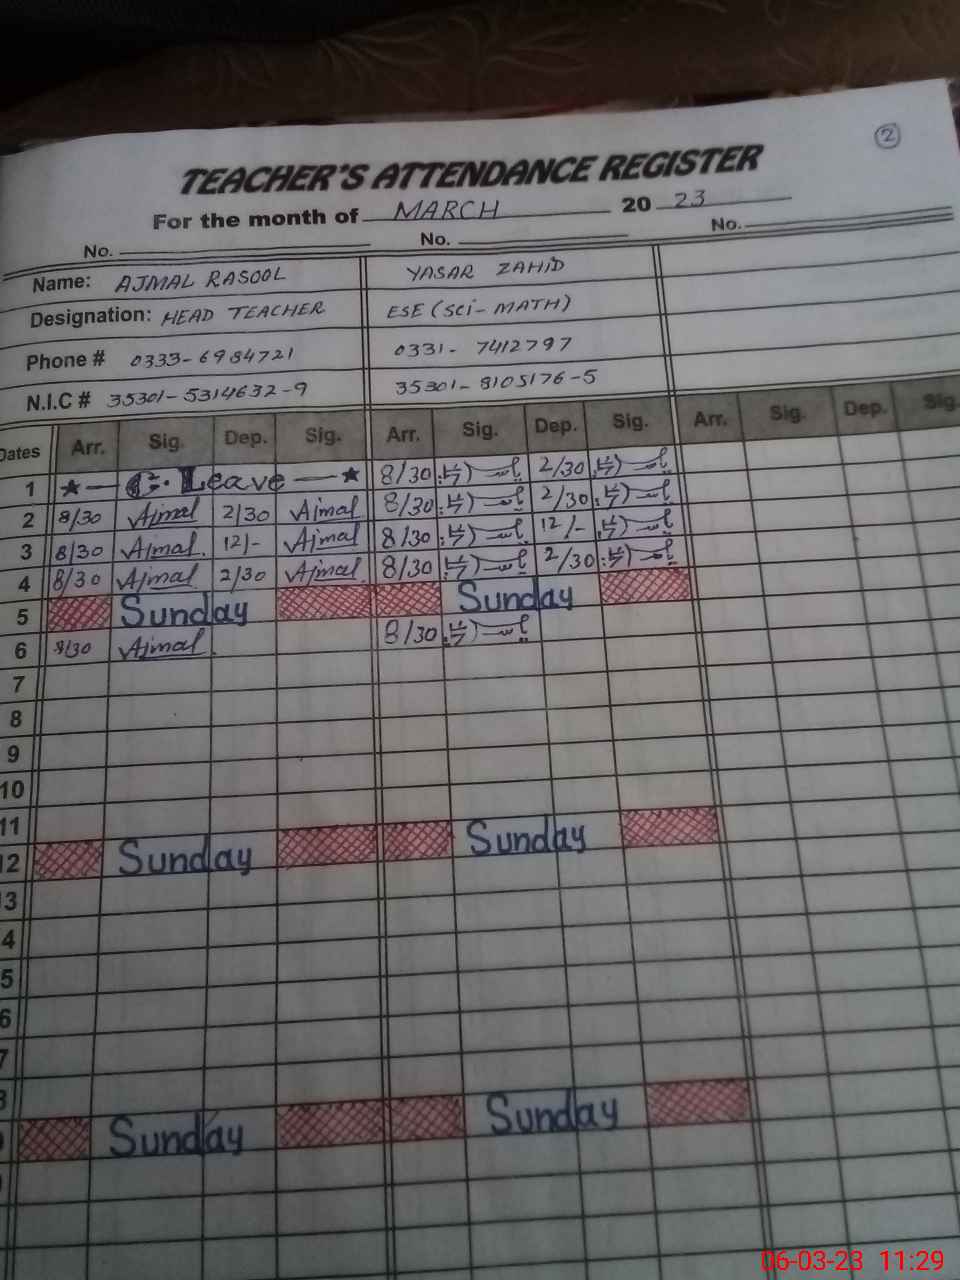 2
TEACHER'S ATTENDANCE REGISTER
For the month of MARCH 20 23
No. No. No.
Name: AJMAL RASOOL YASAR ZAHID
Designation: HEAD TEACHER ESE (SCI-MATH)
Phone # 0333-6984721 0331-7412797
N.I.C # 35301-5314632-9 35301-8105176-5
Dates Arr. Sig. Dep. Sig. Arr. Sig. Dep. Sig. Arr. Sig. Dep. Sig.
1 ★— C. Leave —★ 8/30 2/30
2 8/30 Ajmal 2/30 Ajmal 8/30 2/30
3 8/30 Ajmal. 12/- Ajmal 8/30 12/-
4 8/30 Ajmal 2/30 Ajmal 8/30 2/30
5 Sunday Sunday
6 8/30 Ajmal. 8/30
7
8
9
10
11
12 Sunday Sunday
3
4
5
6
7
Sunday Sunday
06-03-23 11:29